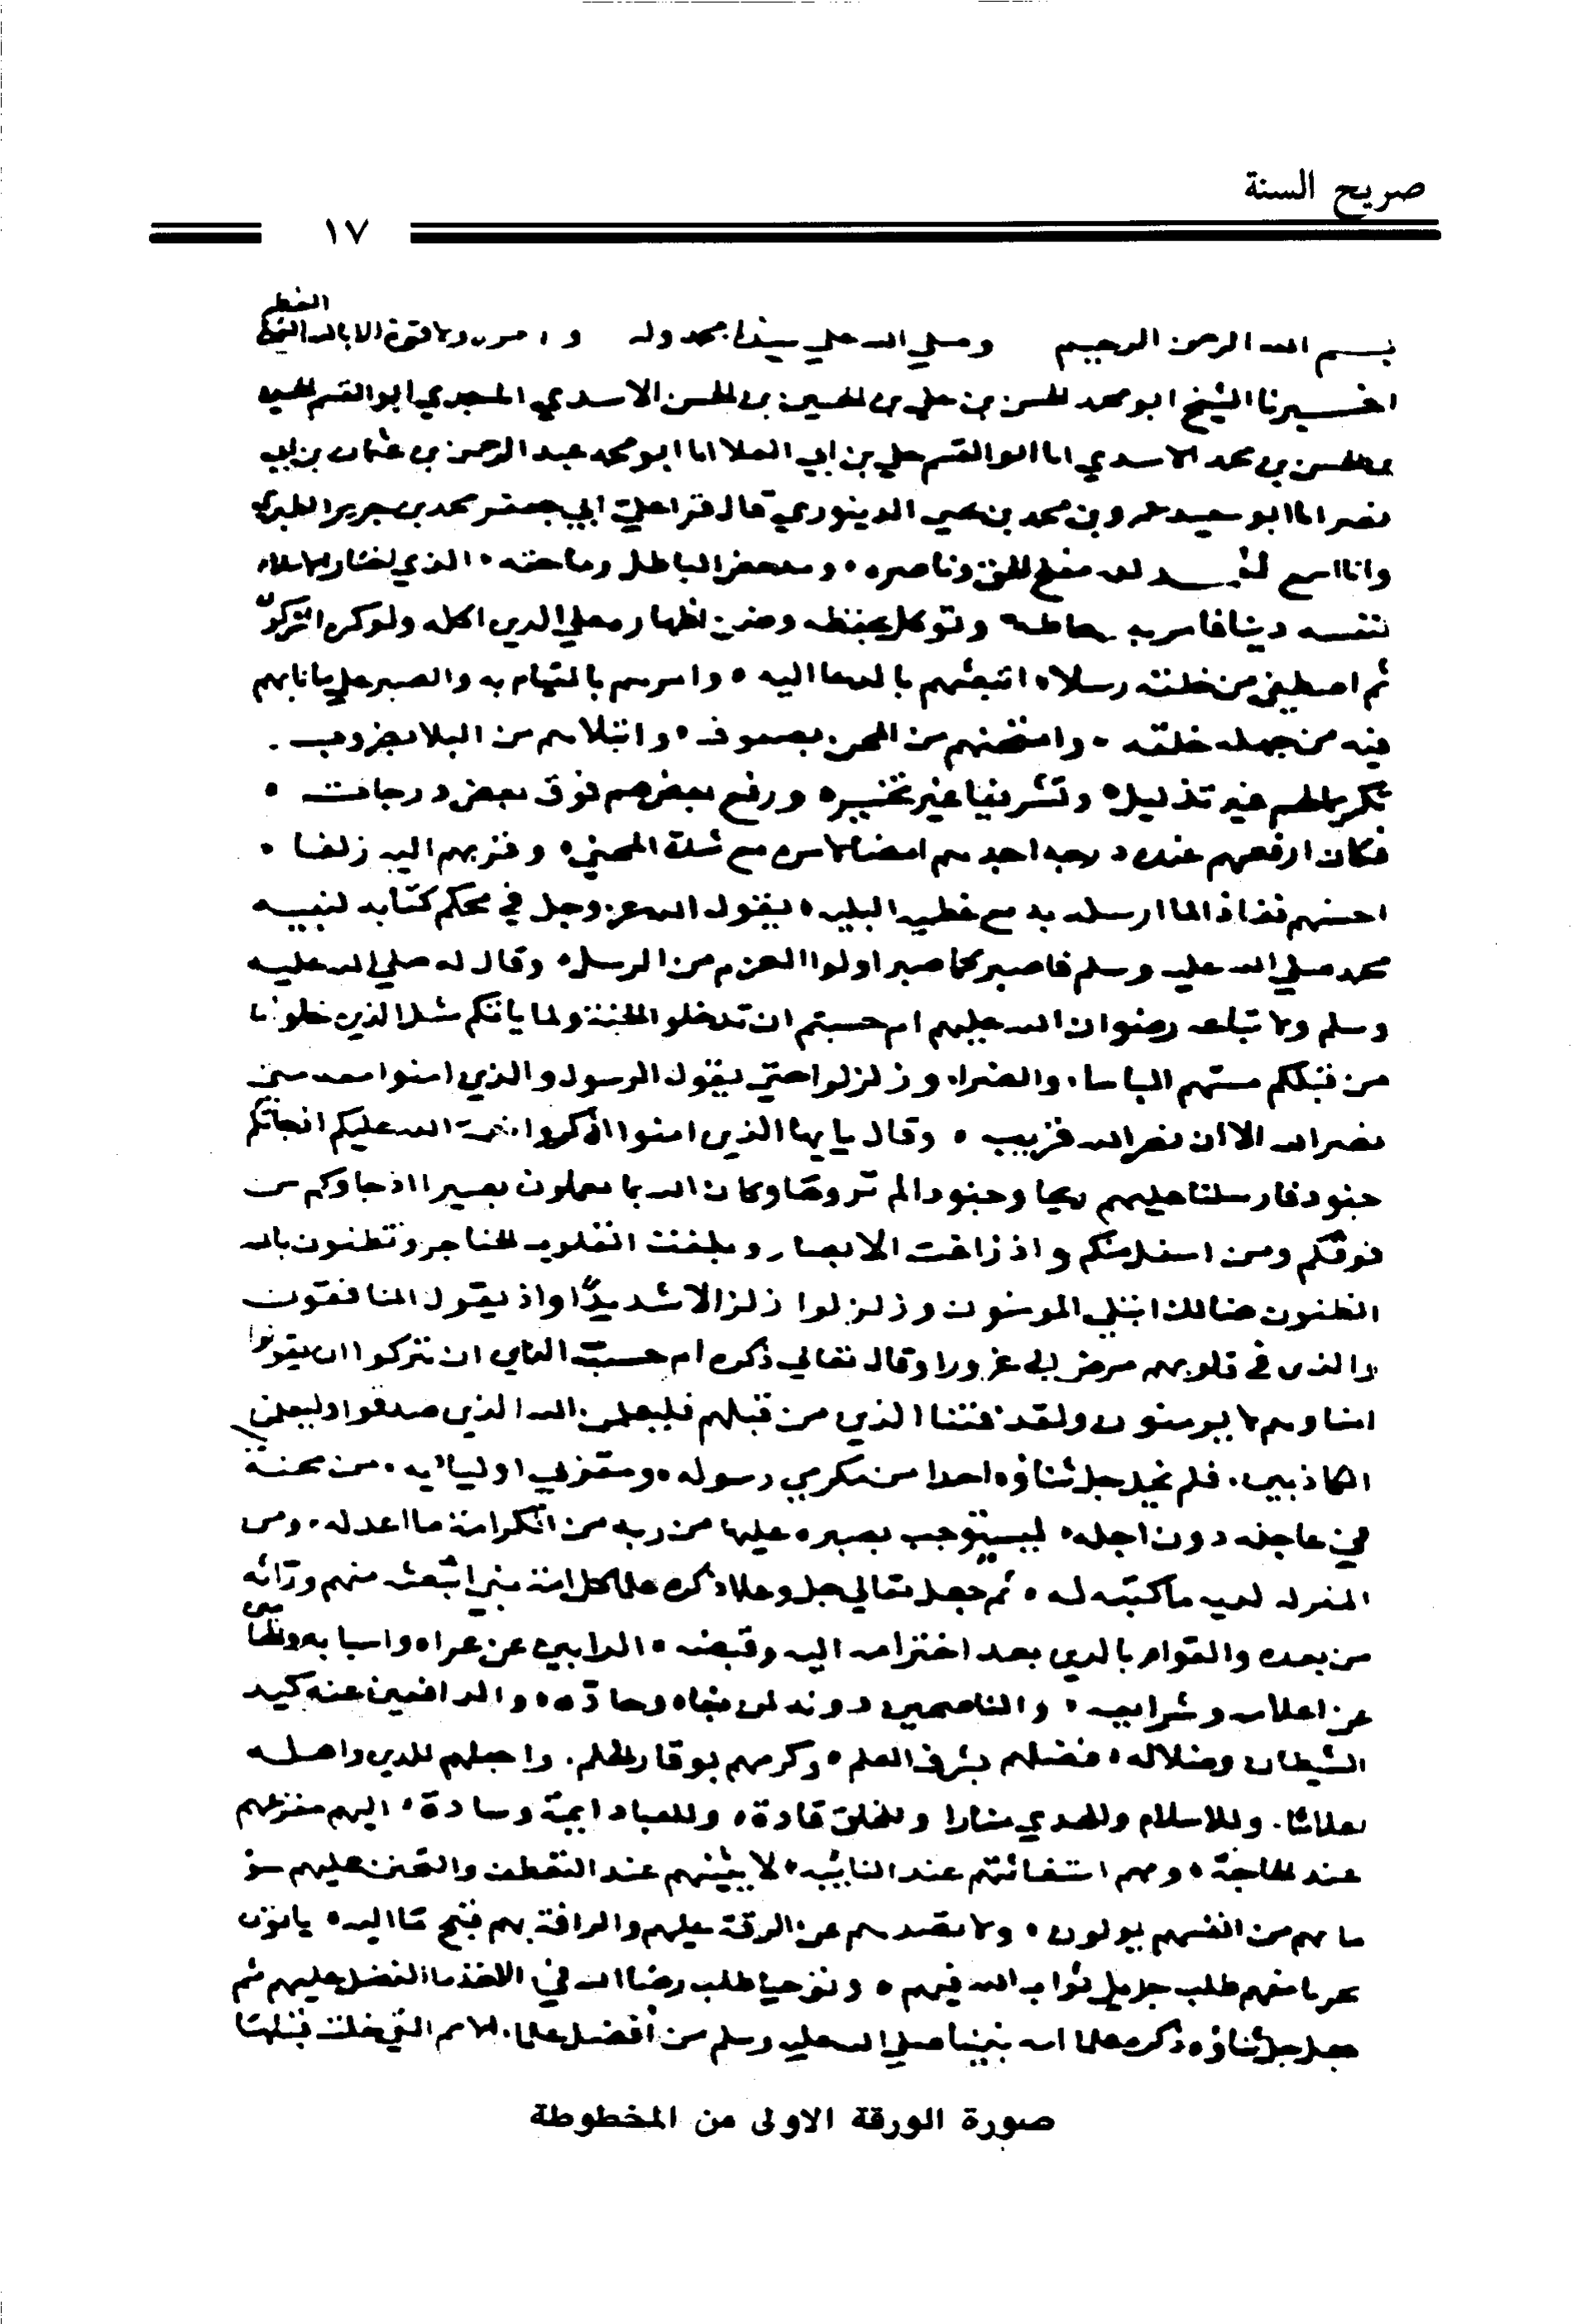 صريح السنة
١٧
بسم الله الرحمن الرحيم وصلي الله علي سيدنا محمد وله ولا قوة الا بالله العلي العظيم
اخبرنا الشيخ ابو محمد الحسن بن علي بن الحسين بن الحسن الاسدي ابو القسم الحسين
بن الحسن بن محمد الاسدي انا ابو القسم علي بن ابي العلا انا ابو محمد عبد الرحمن بن عثمان بن ابي
نصر انا ابو سعيد عمرو بن محمد بن يحيى الدينوري قال قرا علي ابي جعفر محمد بن جرير الطبري
وانا اسمع الحمد لله مفلج الحق وناصره ومدحض الباطل وماحقه الذي اختار الاسلام
لنفسه دينا فامر به وتوكل بحفظه وضمن اظهاره علي الدين كله ولو كره المشركون
ثم اصطفى من خلقه رسلا ابتعثهم بالدعا اليه وامرهم بالقيام به والصبر علي ما نابهم
فيه من جهله خلقه وامتحنهم من المحن بصنوف وابتلاهم من البلا بضروب
تكريما لهم غير تذليل وتشريفا غير تخسير ورفع بعضهم فوق بعض درجات
فكان ارفعهم عنده درجه اجدهم امضا لامره مع شدة المحن واقربهم اليه زلفا
احسنهم نفاذا لما ارسله به مع عظيم البليه يقول الله عز وجل في محكم كتابه لنبيه
محمد صلي الله عليه وسلم فاصبر كما صبر اولوا العزم من الرسل وقال له صلي الله عليه
وسلم ولاتباعه رضوان الله عليهم ام حسبتم ان تدخلوا الجنة ولما ياتكم مثل الذين خلوا
من قبلكم مستهم الباسا والضرا وزلزلوا حتي يقول الرسول والذين امنوا معه متي
نصر الله الا ان نصر الله قريب وقال يا يها الذين امنوا اذكروا نعمة الله عليكم اذ جاتكم
جنود فارسلنا عليهم ريحا وجنودا لم تروها وكان الله بما تعملون بصيرا اذ جاوكم من
فوقكم ومن اسفل منكم واذ زاغت الابصار وبلغت القلوب الحناجر وتظنون بالله
الظنون هنالك ابتلي المومنون وزلزلوا زلزالا شديدا واذ يقول المنافقون
والذين في قلوبهم مرض الي غرورا وقال تعالي ذكره ام حسب الناس ان يتركوا ان يقولوا
امنا وهم لا يفتنون ولقد فتنا الذين من قبلهم فليعلمن الله الذين صدقوا وليعلمن
الكاذبين فلم يخل جل ثناؤه احدا من مكرمي رسوله ومقربي اوليايه من محنة
في عاجله دون اجله ليستوجب بصبره عليها من ربه من الكرامة ما اعد له ومن
المنزله لديه ما كتبه له ثم جعل تعالي جل وعلا ذكره علما كل امة نبي ابتعثه منهم وراثه
من بعده والقوام بالدين بعد اخترامه اليه وقبضه الذابين عن عراه واسبابه
عن اعلامه وشرايعه والناصبين دونه لمن بغاه وحاده والدافعين عنه كيد
الشيطان وضلاله فضلهم بشرف العلم وكرمهم بوقار الحلم وجعلهم للدين واهله
اعلاما وللاسلام والهدي منارا وللخلق قادة وللعباد ايمة وسادة اليهم مفزعهم
عند الحاجة وبهم استغاثتهم عند النائبه لا يثنيهم عند التعطف والتحنن عليهم سو
ما هم من انفسهم يولون ولا تصدهم عن الرقة عليهم والرافة بهم قبح ما اليه ياتون
محرما منهم طلب جزيل ثواب الله فيهم وتوخيا طلب رضا الله في الاخذ بالفضل عليهم ثم
جعل جل ثناؤه ذكره علما امة نبينا صلي الله عليه وسلم من أفضل علما الامم التي خلت قبلها
صورة الورقة الاولى من المخطوطة